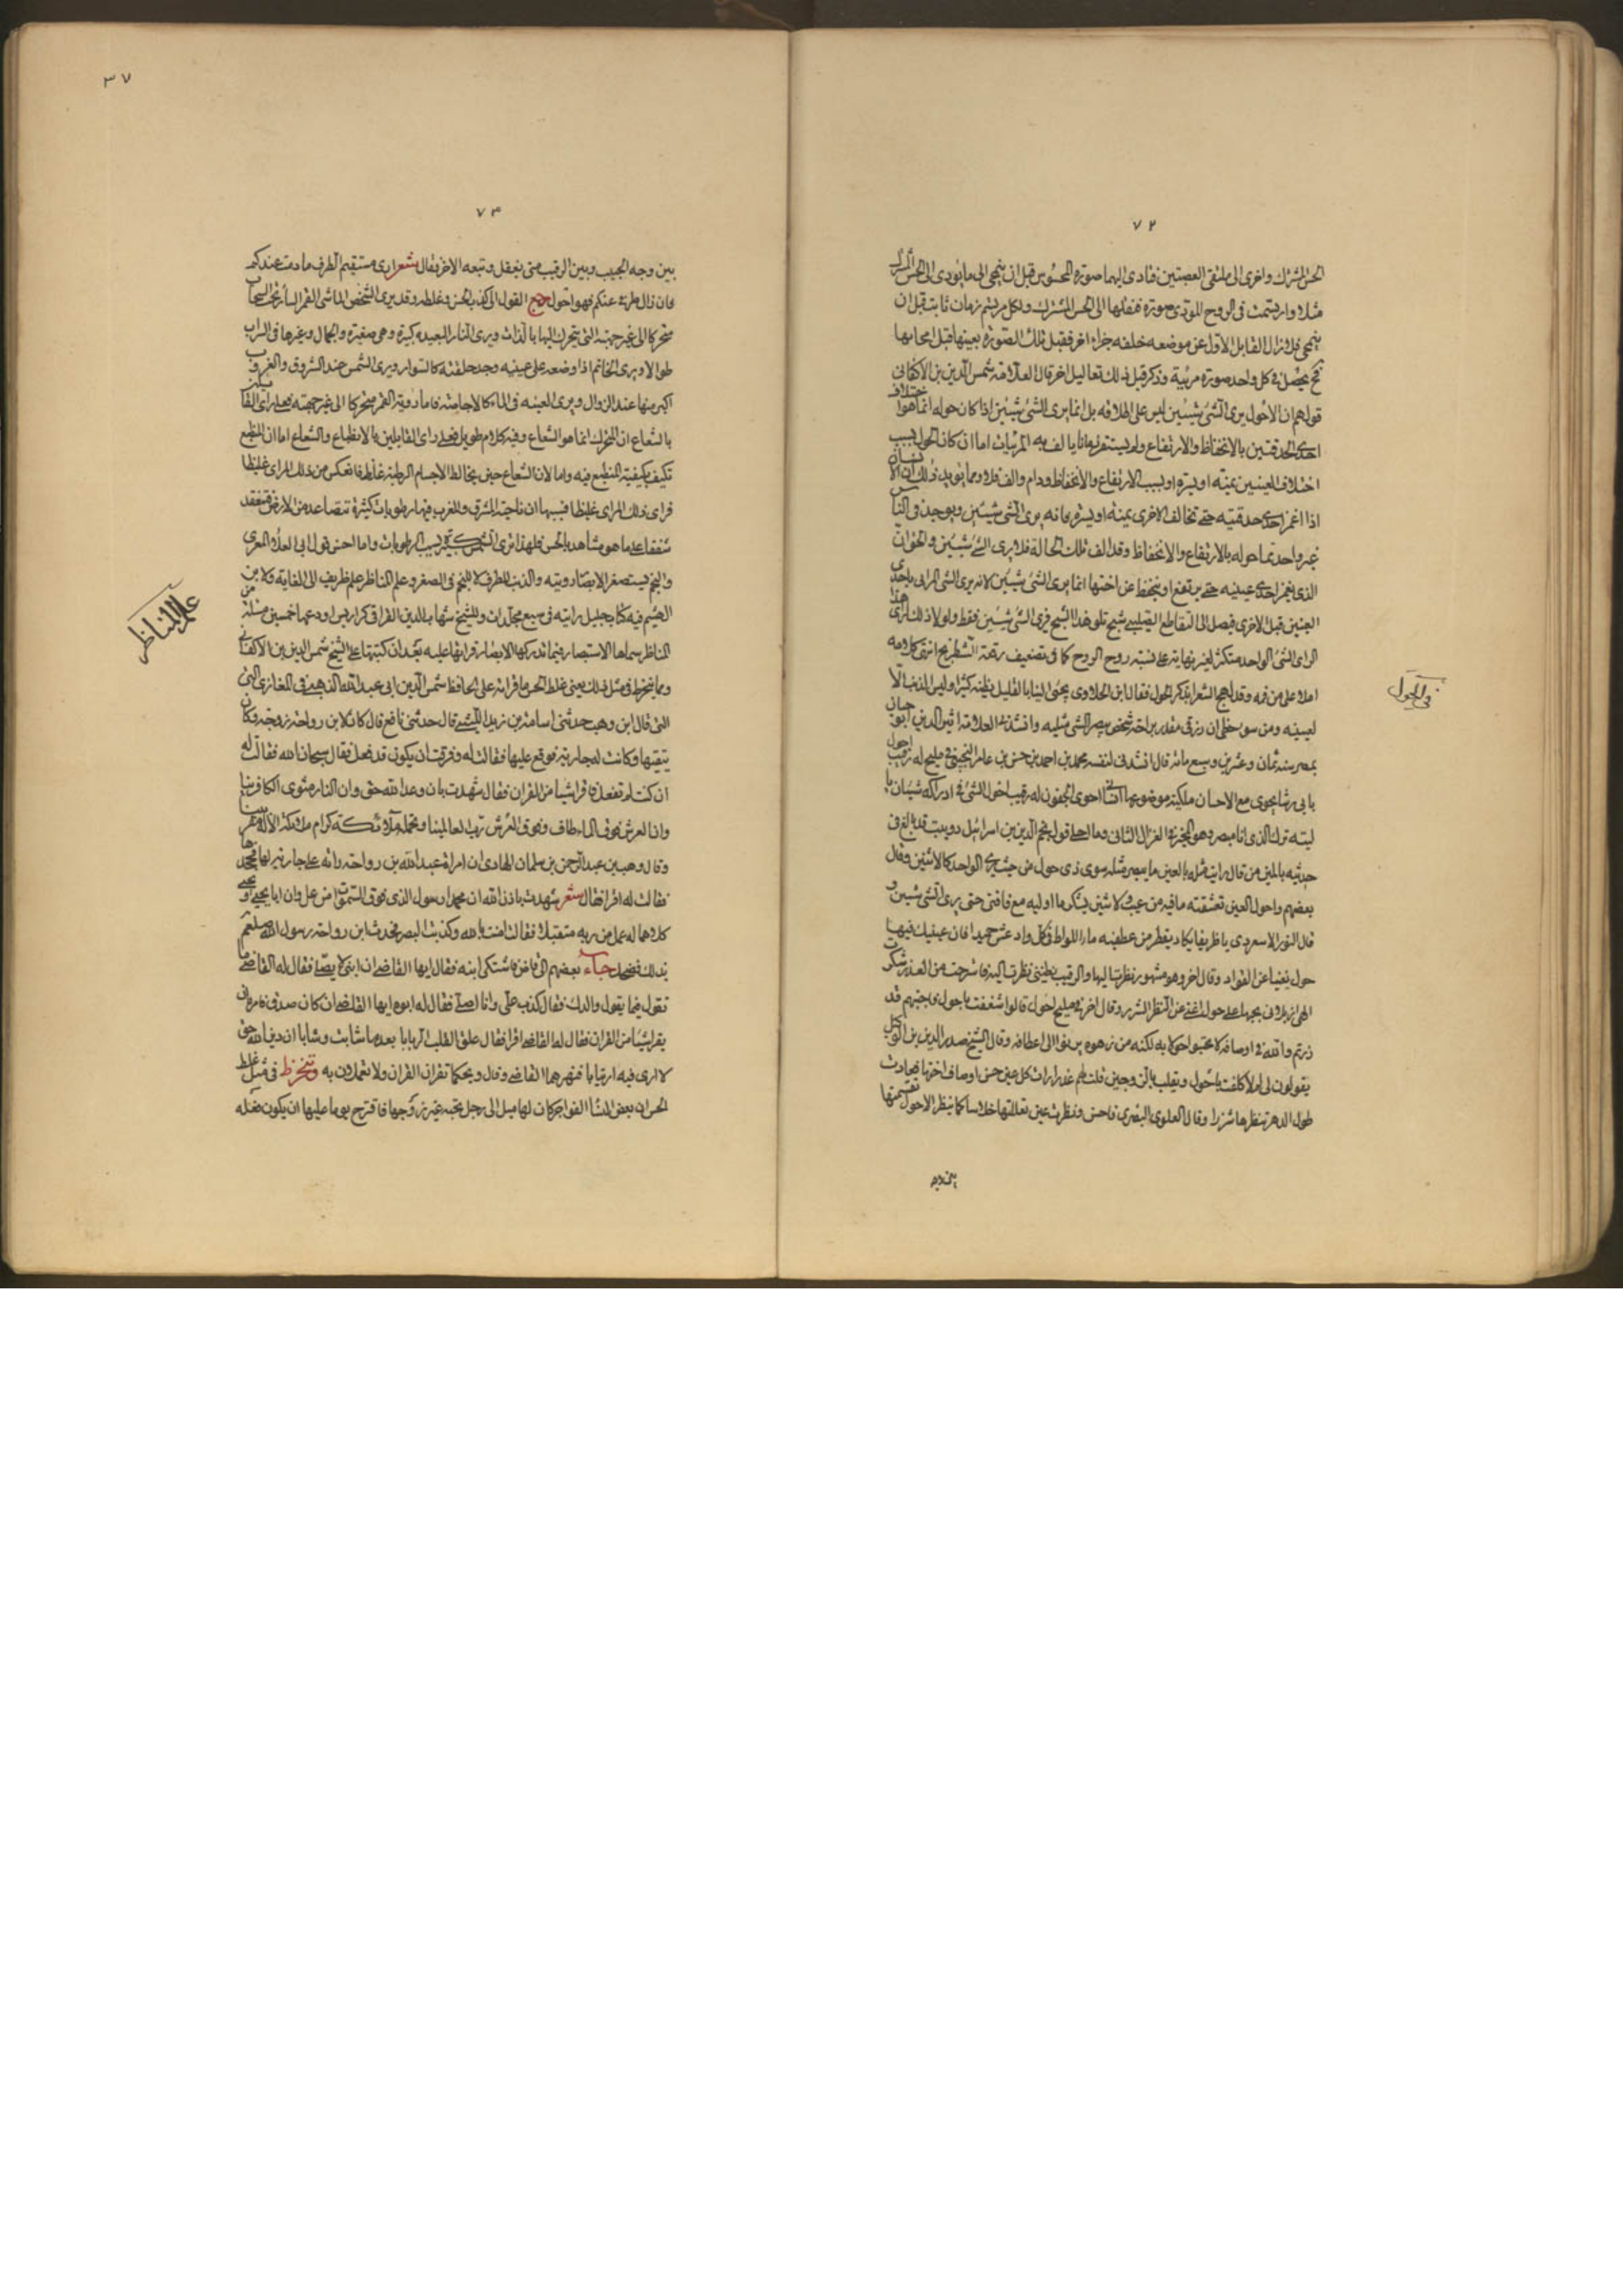 ٧٢
الحس المشترك واخرى الى ملتقى العصبتين فتادى اليهما صورة المحسوس قبل ان ينمحى الى ما يؤدى الى الحس المشترك
مثلا وارتسمت فى الروح المؤدى صورة فنقلها الى الحس المشترك ولكل مرتسم زمان ثابت قبل ان
ينمحى فلا زال القابل الاول عن موضعه خلفه جزاء اخر فقبل تلك الصورة بعينها قبل انمحايها
فح يحصل فى كل واحد صورة مرئية وذكر قبل ذلك تعاليل اخر قال العلامة شمس الدين بن الاكفانى
قولهم ان الاحول يرى الشئ شيئين ليس على اطلاقه بل انما يرى الشئ شيئين اذا كان حوله انما هو اختلاف
احدى الحدقتين بالانخفاظ والارتفاع ولم يستقر زمانا يالف به المرئيات اما ان كان الحول بسبب
اختلاف العينين يمنة او يسرة او بسبب الارتفاع والانخفاظ ودام والف فلا ومما يؤيد ذلك ان الانسان
اذا اغمز احدى حدقتيه حتى تخالف الاخرى يمنة او يسره فانه يرى الشئ شيئين ويوجد فى الناس
غير واحد ممن حوله بالارتفاع والانخفاظ وقد الف تلك الحالة فلا يرى الشئ شيئين والحق ان
الذى يغمز احدى عينيه حتى يرتفع او ينخفظ عن اختها انما يرى الشئ شيئين لانه يرى الشئ المرائى باحدى
العينين قبل الاخرى فيصل الى التقاطع الصليبى شبح تلو هذا الشبح فيرى الشئ شيئين فقط ولولا ذلك لراى هذا
الراى الشئ الواحد متكثرا لغير نهاية على نسبة روح الروح كما فى تضعيف رقعة الشطرنج انتهى كلامه
املاه على من فمه وقد لهج الشعرا بذكر الحول فقال ابن الحلاوى يحثى الينا بالقليل يظنه كثيرا وليس الذنب الا
لعينيه ومن سوء حظى ان رزقى مقدر براحة شخص يبصر الشئ مثليه وانشدنا العلامة اثير الدين ابو حيان
بمصر سنه ثمان وعشرين وسبع مائة قال انشدنى لنفسه محمد بن احمد بن حسن بن عامر التجيبى فى مليح له رقيب احول
بابى رشا يحوى مع الاحسان احوى الجفون له رقيب احول الشئ فى ادراكه شيئان يا
ليته ترك الذى انا مبصر وهو المخير فى الغزال الثانى وما احلى قول نجم الدين بن اسرائيل دوبيت قد بالغ فى
حديثه بالمين من قال رايت مثله بالعين ما يبصر مثله سوى ذى حول من حيث يرى الواحد كالاثنين وقال
بعضهم واحول العين تعشقته ما فيه من عيب ولا شين يشكر ما اوليه مع فاقتى حتى يرى الشئ شيئين و
قال النور الاسعردى يا ظريفا يكاد يقطر من عطفيه ماء اللواط فى كل واد عش حميدا فان عينيك فيها
حول بغيتا عن القواد وقال اخر وهو مشهور نظرت اليها والرقيب يظننى نظرت اليه فاسترحت من العذر شكرت
الهى اذ بلانى بحبها على حول اغنى عن النظر الشزر وقال اخر فى مليح احول قالوا شغفت باحول فاجبتهم قد
زدتم والله فى اوصافه لا تحسبوا حولا به لكنه من زهوه يرنوا الى اعطافه وقال الشيخ صدر الدين بن الوكيل
يقولون لى املا كلفت باحول ويقلب بالن وجين قلت لهم عذرا رات كل عين حسن اوصاف اختها فحادت
طول الدهر تنظرها شزرا وقال العلوى البصرى فاحسن ونظرت عين تعللتها خلاسا كما ينظر الاحول تقسمتها
بين وجه
فى الحول
٣٧
٧٣
بين وجه الحبيب وبين الرقيب متى يغفل وتبعه الاخر فقال شعر ارى مستقيم الطرف ما دمت عندكم
فان زال طرفى عنكم فهو احول رجع القول الى كذب الحس وغلطه وقد يرى الشخص الماشى القمر السائر تحت السحاب
متحركا الى غير جهته التى يتحرك اليها بالذات ويرى النار البعيده كبيرة وهى صغيرة والجبال وغيرها فى السراب
طوالا ويرى الخاتم اذا وضعه على عينيه وجد حلقته كالسوار ويرى الشمس عند الشروق والغروب
اكبر منها عند الزوال ويرى العنبه فى الماء كالاجاصة فاما روية القمر متحركا الى غير جهته فعلى راى القائلين
بالشعاع ان المتحرك انما هو الشعاع وفيه كلام طويل فعلى راى القايلين بالانطباع والشعاع اما ان المنطبع
تكيف بكيفية المنطبع فيه واما لان الشعاع حين يخالط الاجسام الرطبة غلظ فانعكس من ذلك المراى غليظا
فراى ذلك المراى غليظا فسببها ان ناحيتى المشرق والمغرب فيها رطوبات كثيرة تتصاعد من الارض فتنعقد
شففا على ما هو مشاهد بالحس فلهذا ترى الشمس كبيرة بسبب الرطوبات واما احسن قول ابى العلاء المعرى
والنجم تستصغر الابصار رويته والذنب للطرف لا للنجم فى الصغر وعلم المناظر علم ظريف الى الغاية ولابن
الهيثم فيه كتاب جليل رايته فى سبع مجلدات وللشيخ شهاب الدين القرافى كراريس اودعها خمسين مسئلة من
المناظر سماها الاستبصار فيما تدركه الابصار قراتها عليه بعد ان كتبتها على الشيخ شمس الدين بن الاكفانى
ومما ينخرط فى مثل ذلك يعنى غلط الحس ما قراته على الحافظ شمس الدين ابى عبد الله الذهبى فى المغازى التى
التى قال ابن وهب حدثنى اسامة بن زيد الليثى قال حدثنى نافع قال كانت لابن رواحة زوجة وكان
يتقيها وكانت له جارية فوقع عليها فقالت له وفرقت ان يكون قد فعل فقال سبحان الله فقالت له
ان كنت لم تفعل فاقرا شيئا من القران فقال شهدت بان وعد الله حق وان النار مثوى الكافرينا
وان العرش فوق الماء طاف وفوق العرش رب العالمينا وتحمله ملائكة كرام ملائكة الاله مقربينا
وقال وهب بن عبد الرحمن بن سلمان الهادى ان امراة عبد الله بن رواحة راته على جارية لها فجحدها
فقالت له اقرا فقال شعر شهدت باذن الله ان محمدا رسول الذى فوق السموات من عل وان ابا يحيى ويحيى
كلاهما له عمل من ربه متقبل فقالت امنت بالله وكذبت البصر فحدث ابن رواحة رسول الله صلعم
بذلك فضحك جاء بعضهم الى قاض فاشتكى ابنه فقال ايها القاضى ان ابنى لا يصلى فقال له القاضى ما
تقول فيما يقول والدك فقال كذب على وانا اصلى فقال له ابوه ايها القاضى ان كان صدق فامره ان
يقرا شيئا من القران فقال له القاضى اقرا فقال علق القلب الربابا بعد ما شابت وشابا ان دين الله حق
لا ارى فيه ارتيابا فنهرهما القاضى وقال ويحكما تقران القران ولا تعملون به وينخرط فى مثل غلط
الحس ان بعض النسا الفواجر كان لها ميل الى رجل يحبه غير زوجها فاقترح يوما عليها ان يكون فعله
علم المناظر